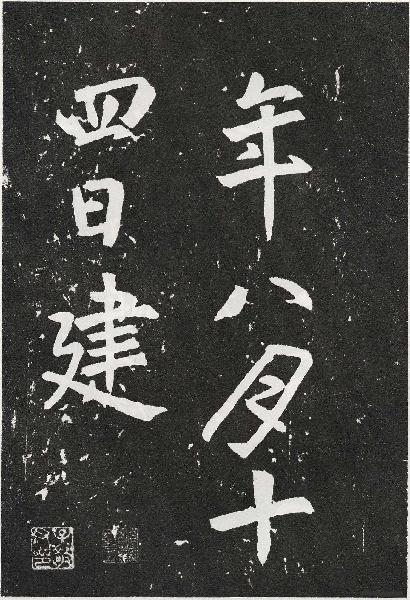 年八月十
四日建